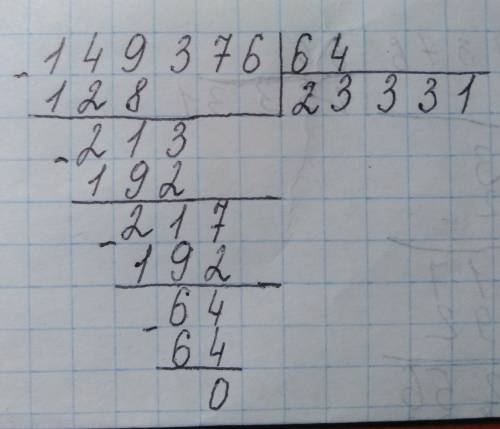 - 149376 | 64
128 | 23331
- 213
192
- 217
192
- 64
64
0